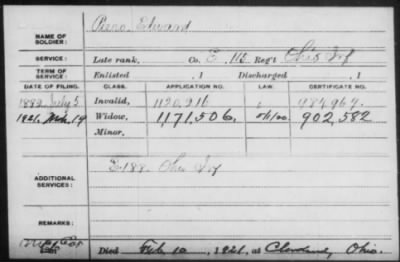 NAME OF SOLDIER: Piero, Edward
SERVICE: Late rank, Co. E, 115 Reg't Ohio Inf
TERM OF SERVICE: Enlisted , 1 Discharged , 1
DATE OF FILING. CLASS. APPLICATION NO. CERTIFICATE NO.
1892 July 5 Invalid, 1120,216
1921, Mch 19 Widow, 1,171,506, 902,582
Minor.
ADDITIONAL SERVICES: E 188 Ohio Inf
REMARKS:
Died Feb. 10, 1921, at Cleveland, Ohio.